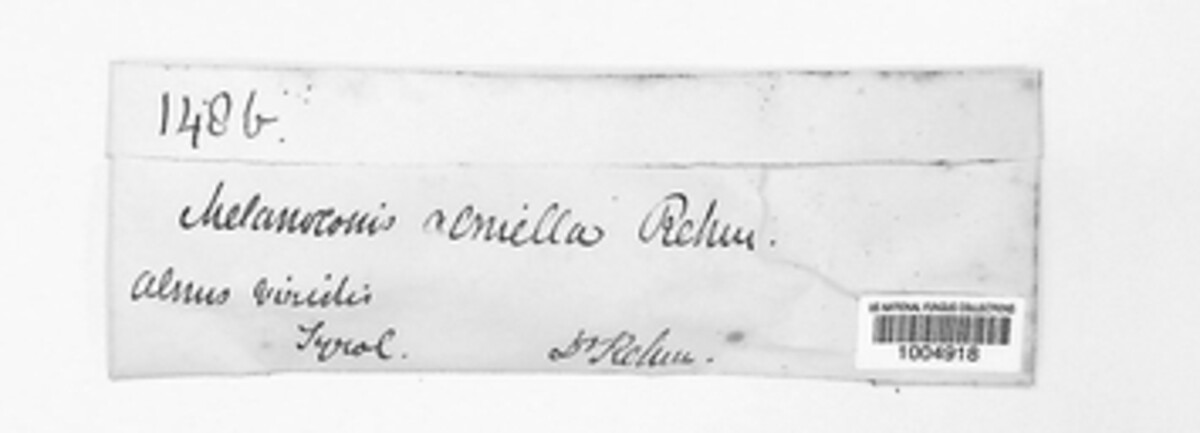 148 b.
Melanoconis alniella Rehm.
Alnus viridis
Tyrol.
Dr Rehm.
US NATIONAL FUNGUS COLLECTIONS
1004918